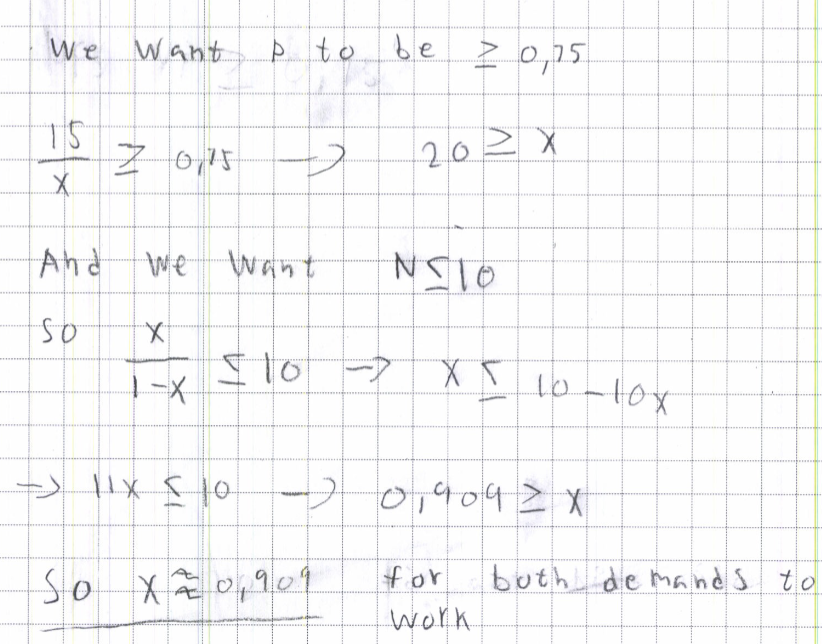 We want p to be ≥ 0,75
15/x ≥ 0,75 → 20 ≥ x
And we want N ≤ 10
so x/(1-x) ≤ 10 → x ≤ 10-10x
→ 11x ≤ 10 → 0,909 ≥ x
so x ≈ 0,909 for both demands to
work